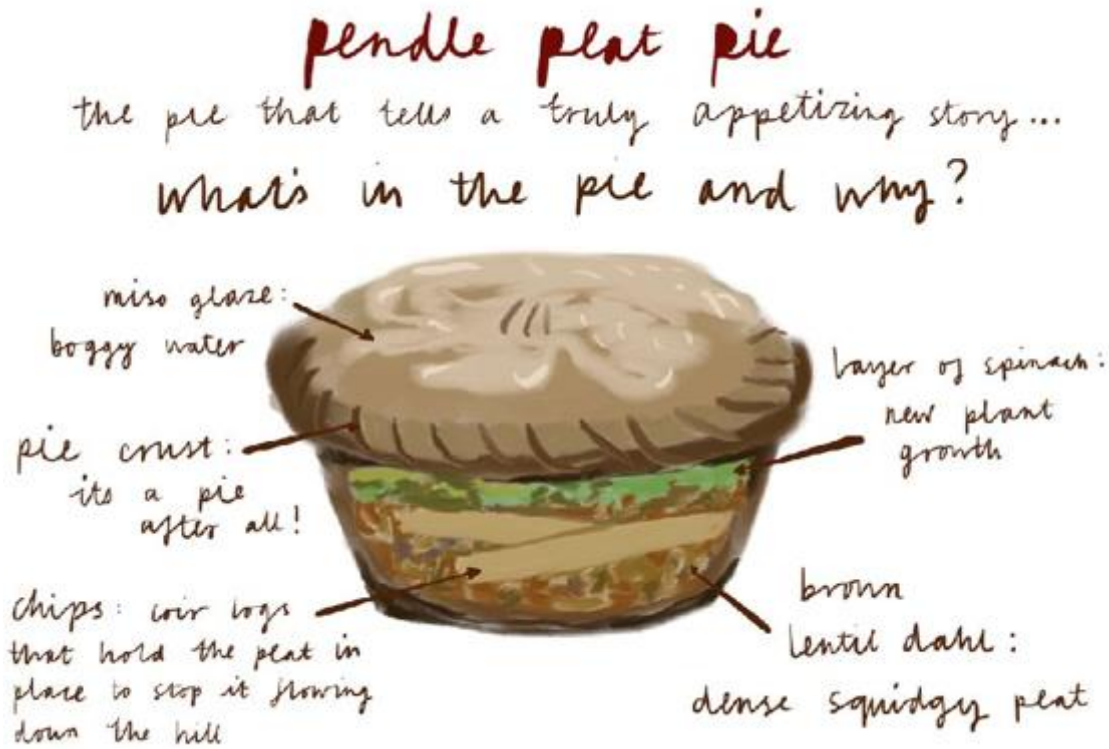 pendle peat pie
the pie that tells a truly appetizing story...
what's in the pie and why?
miso glaze:
boggy water
pie crust:
its a pie
after all!
chips: coir logs
that hold the peat in
place to stop it flowing
down the hill
layer of spinach:
new plant
growth
brown
lentil dahl:
dense squidgy peat